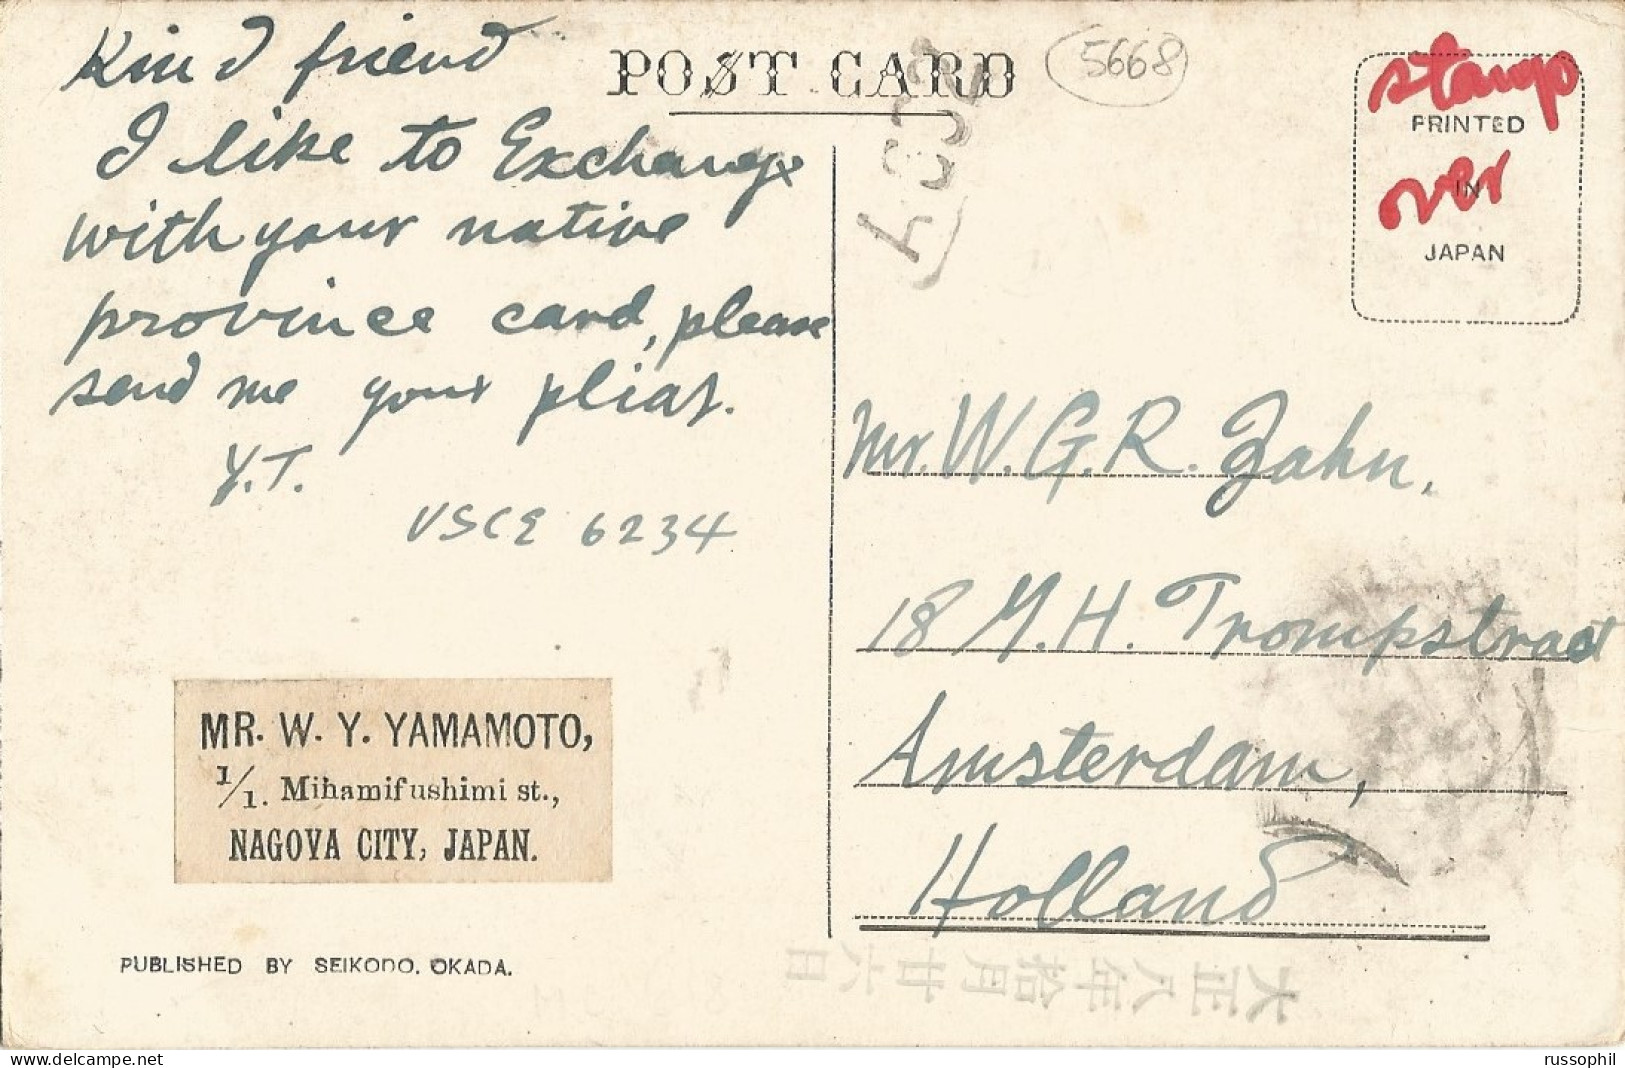 Kind friend
I like to Exchange
with your native
province card, please
send me your pliat.
Y.T.
VSCE 6234
MR. W. Y. YAMAMOTO,
1/1. Mihamifushimi st.,
NAGOYA CITY, JAPAN.
PUBLISHED BY SEIKODO. OKADA.
POST CARD
5668
stamp
PRINTED
over
IN
JAPAN
Mr. W. G. R. Zahn,
18 M. H. Trompstraat
Amsterdam,
Holland
大正八年拾月廿六日
russophil
www.delcampe.net